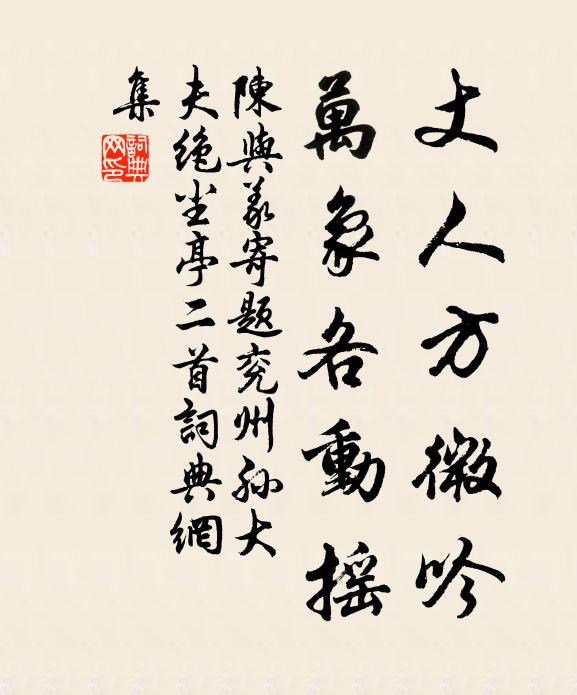 丈人方微吟
萬象各動搖
陳與義寄題兖州孫大
夫絶塵亭二首詞典網
集
詞典網印